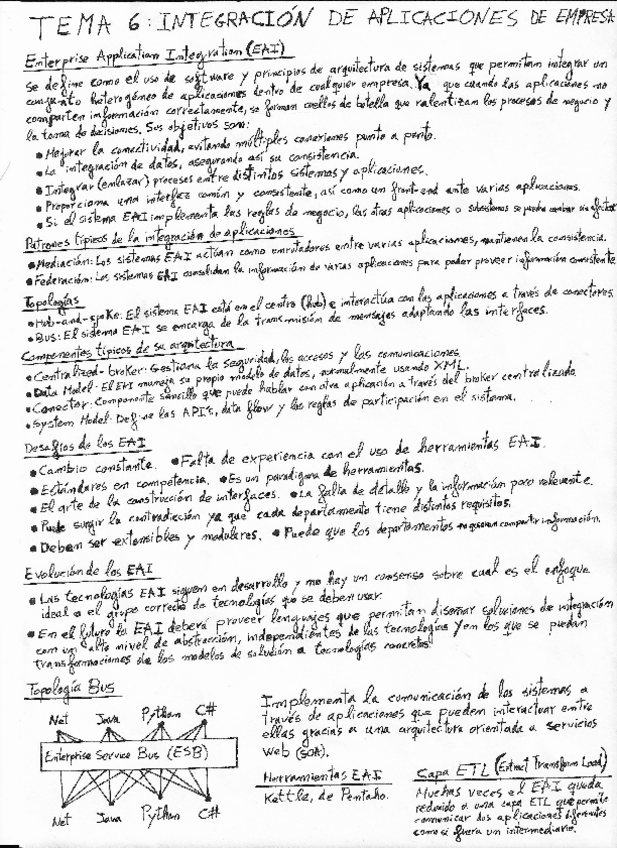 TEMA 6: INTEGRACIÓN DE APLICACIONES DE EMPRESA
Enterprise Application Integration (EAI)
Se define como el uso de software y principios de arquitectura de sistemas que permitan integrar un
conjunto heterogéneo de aplicaciones dentro de cualquier empresa. Ya que cuando las aplicaciones no
comparten información correctamente, se forman cuellos de botella que ralentizan los procesos de negocio y
la toma de decisiones. Sus objetivos son:
• Mejorar la conectividad, evitando múltiples conexiones punto a punto.
• La integración de datos, asegurando así su consistencia.
• Integrar (enlazar) procesos entre distintos sistemas y aplicaciones.
• Proporciona una interfaz común y consistente, así como un front-end ante varias aplicaciones.
• Si el sistema EAI implementa las reglas de negocio, las otras aplicaciones o subsistemas se pueden cambiar sin afectar
Patrones típicos de la integración de aplicaciones
• Mediación: Los sistemas EAI actúan como enrutadores entre varias aplicaciones, mantienen la consistencia.
• Federación: Los sistemas EAI consolidan la información de varias aplicaciones para poder proveer información consistente
Topologías
• Hub-and-spoke: El sistema EAI está en el centro (hub) e interactúa con las aplicaciones a través de conectores.
• Bus: El sistema EAI se encarga de la transmisión de mensajes adaptando las interfaces.
Componentes típicos de su arquitectura
• Centralized-broker: Gestiona la seguridad, los accesos y las comunicaciones.
• Data Model: El EAI maneja su propio modelo de datos, normalmente usando XML.
• Conector: Componente sencillo que puede hablar con otra aplicación a través del broker centralizado.
• System Model: Define las API's, data flow y las reglas de participación en el sistema.
Desafíos de los EAI
• Cambio constante. • Falta de experiencia con el uso de herramientas EAI.
• Estándares en competencia. • Es un paradigma de herramientas.
• El arte de la construcción de interfaces. • La falta de detalle y la información poco relevante.
• Puede surgir la contradicción ya que cada departamento tiene distintos requisitos.
• Deben ser extensibles y modulares. • Puede que los departamentos no quieran compartir información.
Evolución de los EAI
• Las tecnologías EAI siguen en desarrollo y no hay un consenso sobre cual es el enfoque
ideal o el grupo correcto de tecnologías que se deben usar.
• En el futuro la EAI deberá proveer lenguajes que permitan diseñar soluciones de integración
con un alto nivel de abstracción, independientes de las tecnologías y en los que se puedan
transformaciones de los modelos de solución a tecnologías concretas.
Topología Bus
Net Java Python C#
Enterprise Service Bus (ESB)
Net Java Python C#
Implementa la comunicación de los sistemas a
través de aplicaciones que pueden interactuar entre
ellas gracias a una arquitectura orientada a servicios
web (SOA).
Herramientas EAI
Kettle, de Pentaho.
Capa ETL (Extract Transform Load)
Muchas veces el EAI queda
reducido a una capa ETL que permite
comunicar dos aplicaciones diferentes
como si fuera un intermediario.